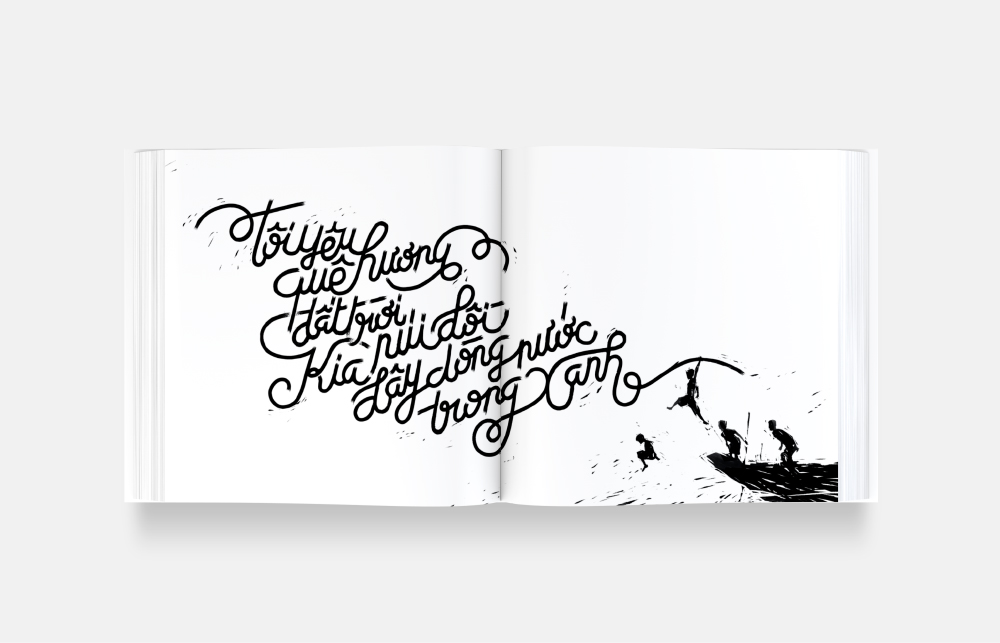 Tôi yêu
quê hương
đất trời
Kìa núi đồi
đây dòng nước
trong xanh